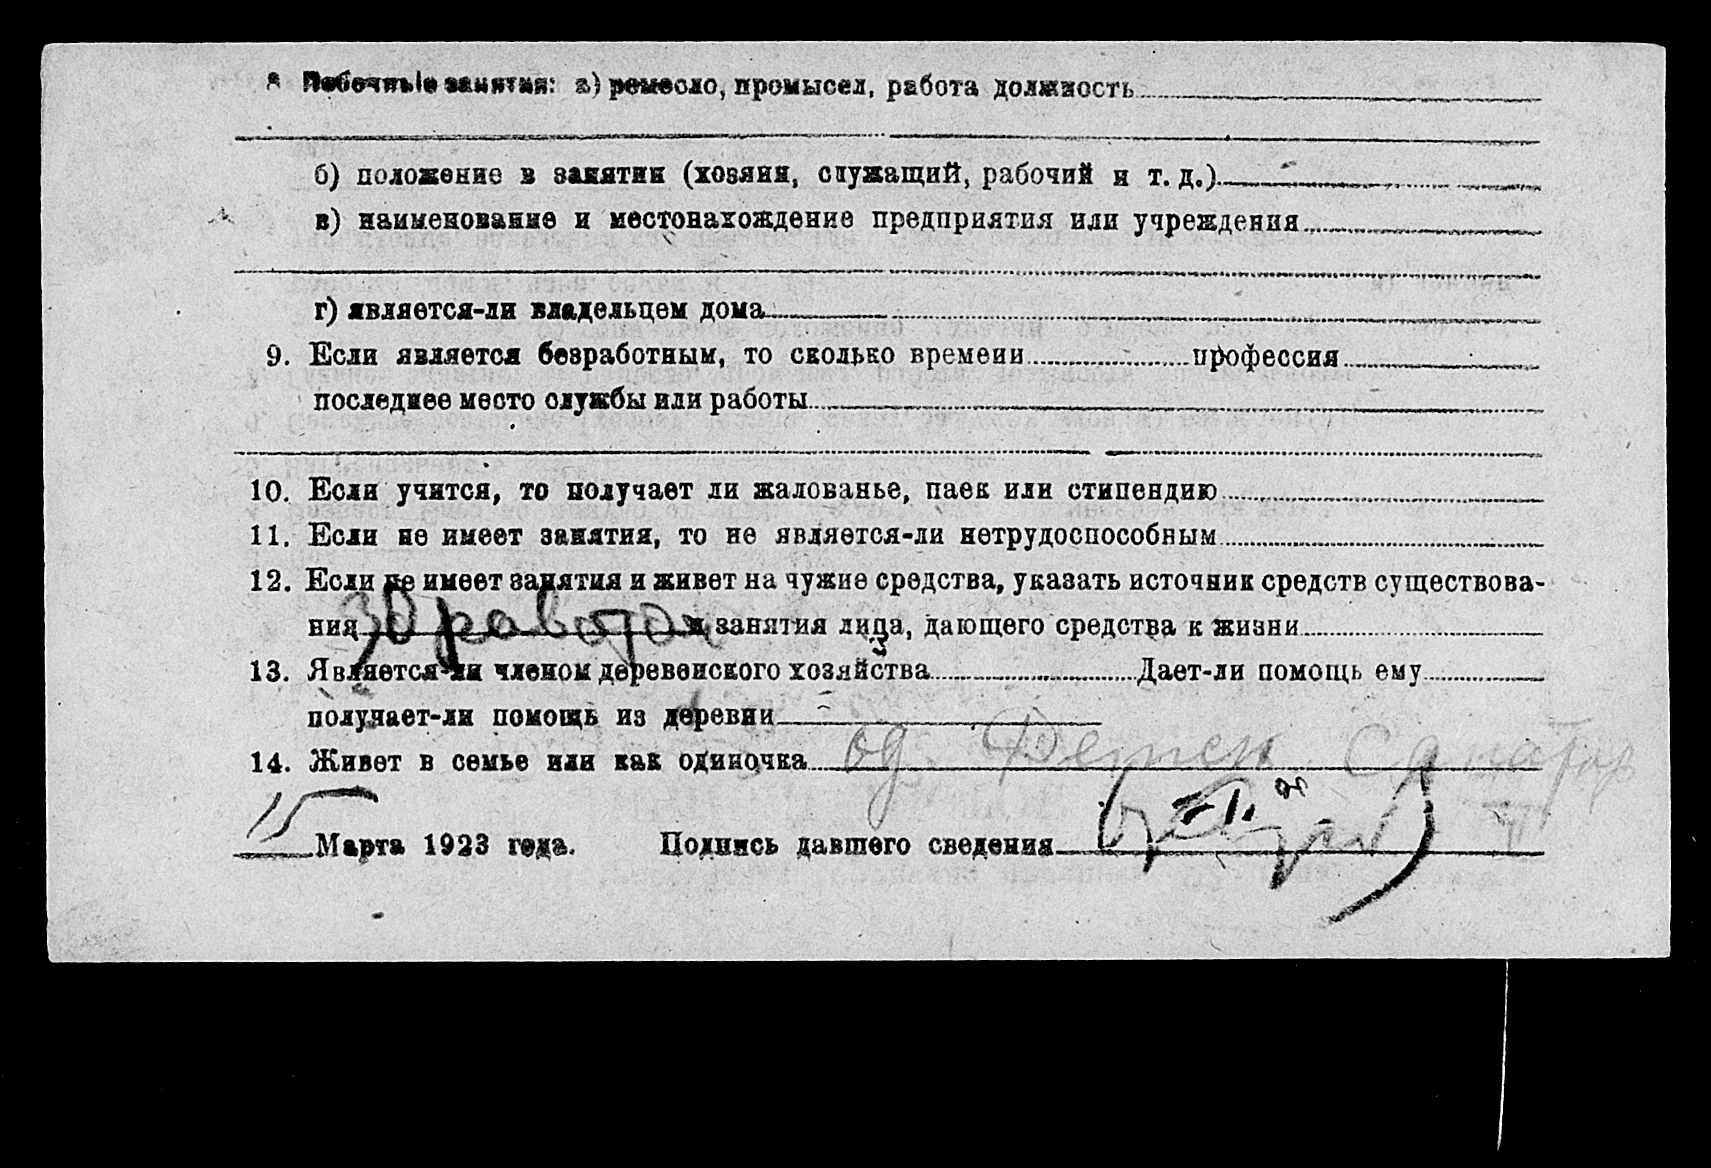 8 Побочные занятия: а) ремесло, промысел, работа должность
б) положение в занятии (хозяин, служащий, рабочий и т. д.)
в) наименование и местонахождение предприятия или учреждения
г) является-ли владельцем дома
9. Если является безработным, то сколько времени профессия
последнее место службы или работы
10. Если учится, то получает ли жалованье, паек или стипендию
11. Если не имеет занятия, то не является-ли нетрудоспособным
12. Если не имеет занятия и живет на чужие средства, указать источник средств существова-
ния Здравотдел и занятия лица, дающего средства к жизни
13. Является-ли членом деревенского хозяйства Дает-ли помощь ему
получает-ли помощь из деревни
14. Живет в семье или как одиночка од. Детск. Санатор
15 Марта 1923 года. Подпись давшего сведения